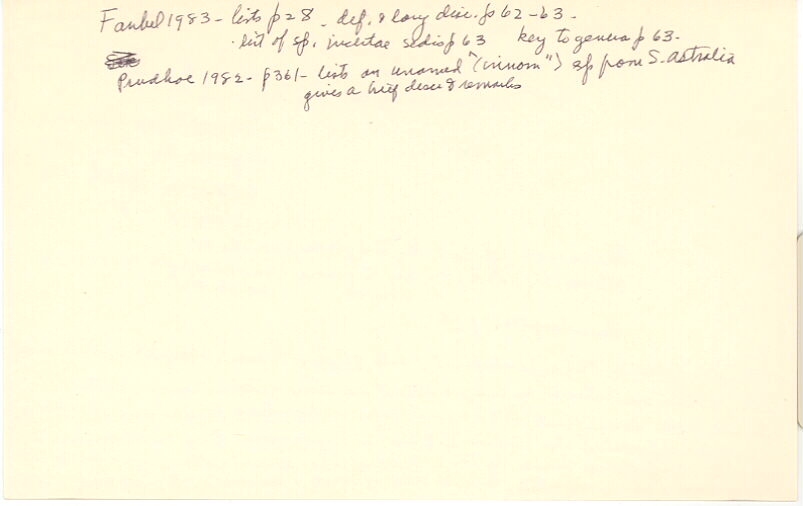 Faubel 1983 - lists p 28 - def. & long disc. p 62-63.
- list of sp. incertae sedis p 63 key to genera p 63.
Prudhoe 1982 - p 361 - lists an unnamed ("innom") sp from S. Astralia
gives a brief descr & remarks